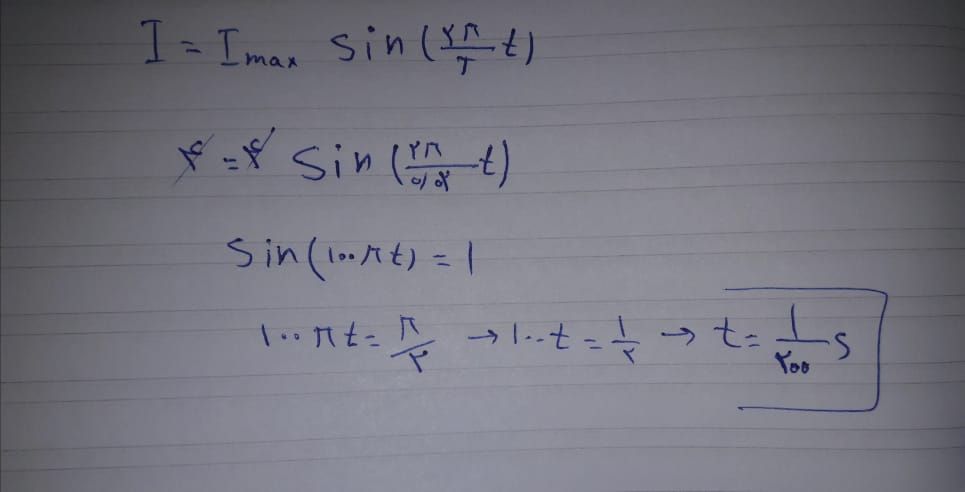 I = Imax sin(۲π/T t)
۴ = ۴ sin(۲π/۰/۰۲ t)
sin(۱۰۰πt) = ۱
۱۰۰πt = π/۲ → ۱۰۰t = ۱/۲ → t = ۱/۲۰۰ s